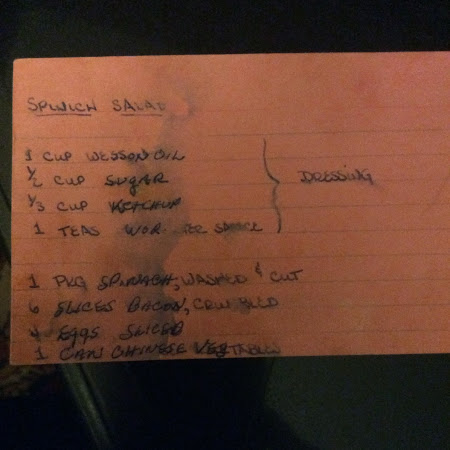 SPINICH SALAD
1 CUP WESSON OIL
1/2 CUP SUGAR
1/3 CUP KETCHUP
1 TEAS WOR TER SAUCE
DRESSING
1 PKG SPINACH, WASHED & CUT
6 SLICES BACON, CRUMBLED
4 EGGS SLICED
1 CAN CHINESE VEGTABLES